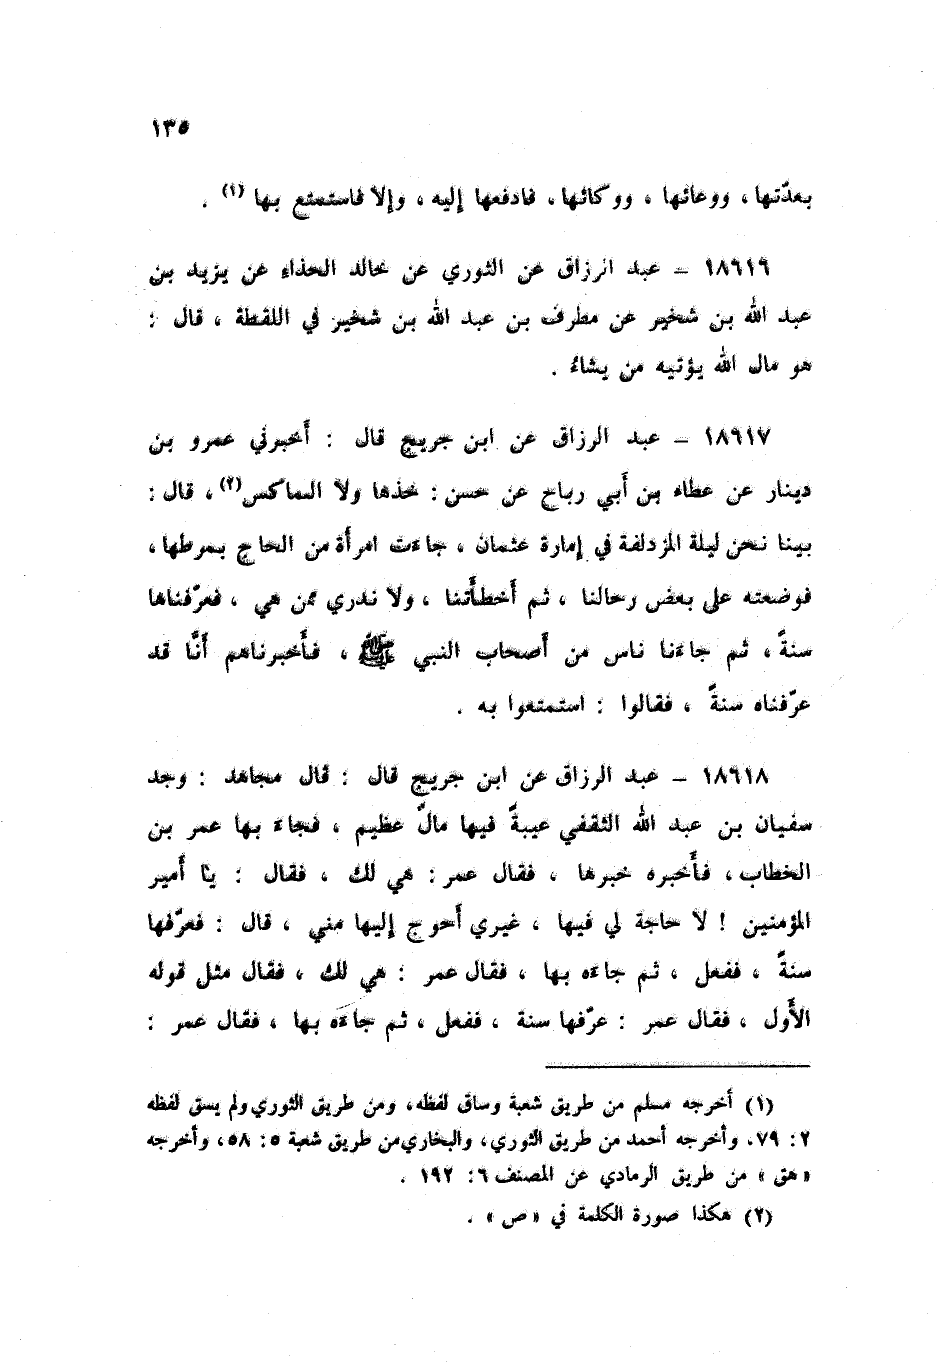 ١٣٥
بعدّتها ، ووعائها ، ووكائها، فادفعها إليه ، وإلا فاستمتع بها (١) .
١٨٦١٩ – عبد الرزاق عن الثوري عن خالد الحذاء عن يزيد بن
عبد الله بن شخير عن مطرف بن عبد الله بن شخير في اللقطة ، قال :
هو مال الله يؤتيه من يشاءُ .
١٨٦١٧ – عبد الرزاق عن ابن جريج قال : أَخبرني عمرو بن
دينار عن عطاء بن أَبي رباح عن حسن : خذها ولا الماكس(٢) ، قال :
بينا نحن ليلة المزدلفة في إمارة عثمان ، جاءت امرأة من الحاج بمرطها ،
فوضعته على بعض رحالنا ، ثم أَخطأَتنا ، ولا ندري ممن هي ، فعرّفناها
سنةً ، ثم جاءَنا ناس من أَصحاب النبي ﷺ ، فأَخبرناهم أَنَّا قد
عرّفناه سنةً ، فقالوا : استمتعوا به .
١٨٦١٨ – عبد الرزاق عن ابن جريج قال : قال مجاهد : وجد
سفيان بن عبد الله الثقفي عيبةً فيها مالٌ عظيم ، فجاءَ بها عمر بن
الخطاب ، فأَخبره خبرها ، فقال عمر : هي لك ، فقال : يا أَمير
المؤمنين ! لا حاجة لي فيها ، غيري أَحوج إليها مني ، قال : فعرّفها
سنةً ، ففعل ، ثم جاءَه بها ، فقال عمر : هي لك ، فقال مثل قوله
الأَول ، فقال عمر : عرّفها سنة ، ففعل ، ثم جاءَه بها ، فقال عمر :
(١) أخرجه مسلم من طريق شعبة وساق لفظه، ومن طريق الثوري ولم يسق لفظه
٢ : ٧٩. وأخرجه أحمد من طريق الثوري، والبخاري من طريق شعبة ٥ : ٥٨، وأخرجه
« هق » من طريق الرمادي عن المصنف ٦ : ١٩٢ .
(٢) هكذا صورة الكلمة في « ص » .